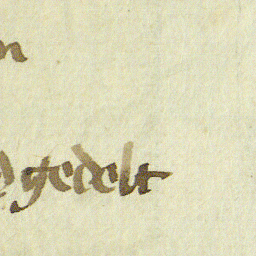 n
gedelt